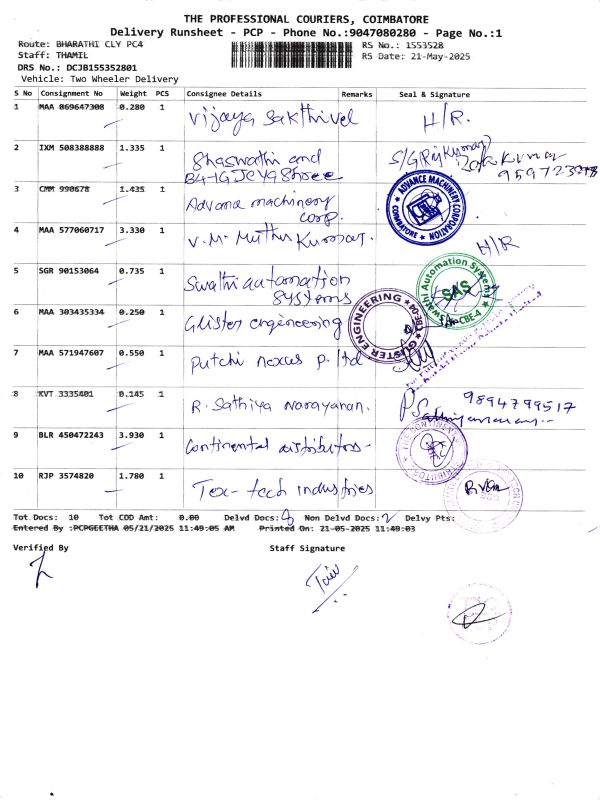 THE PROFESSIONAL COURIERS, COIMBATORE
Delivery Runsheet - PCP - Phone No.:9047080280 - Page No.:1
Route: BHARATHI CLY PC4 RS No.: 1553528
Staff: THAMIL RS Date: 21-May-2025
DRS No.: DCJB155352801
Vehicle: Two Wheeler Delivery
S No Consignment No Weight PCS Consignee Details Remarks Seal & Signature
1 MAA 869647308 0.280 1 Vijaya Sakthivel H/R.
2 IXM 508388888 1.335 1 Shaswathi and
3 CMM 990678 1.435 1 Advana machinery
corp.
ADVANCE MACHINERY CORPORATION
COIMBATORE
4 MAA 577060717 3.330 1 V.M. Muthu Kumar. H/R
5 SGR 90153064 0.735 1 Swathi automation
systems
Swathi Automation Systems
SAS
CBE-4
6 MAA 303435334 0.250 1 Glister engineering
GLISTER ENGINEERING
7 MAA 571947607 0.550 1 Putchi nexus p. ltd
8 KVT 3335401 0.145 1 R. Sathiya Narayanan. 9894799517
9 BLR 450472243 3.930 1 Continental distributors-
10 RJP 3574820 1.780 1 Tex-tech industries
Tot Docs: 10 Tot COD Amt: 0.00 Delvd Docs: 8 Non Delvd Docs: 2 Delvy Pts:
Entered By :PCPGEETHA 05/21/2025 11:49:05 AM Printed On: 21-05-2025 11:49:03
Verified By Staff Signature